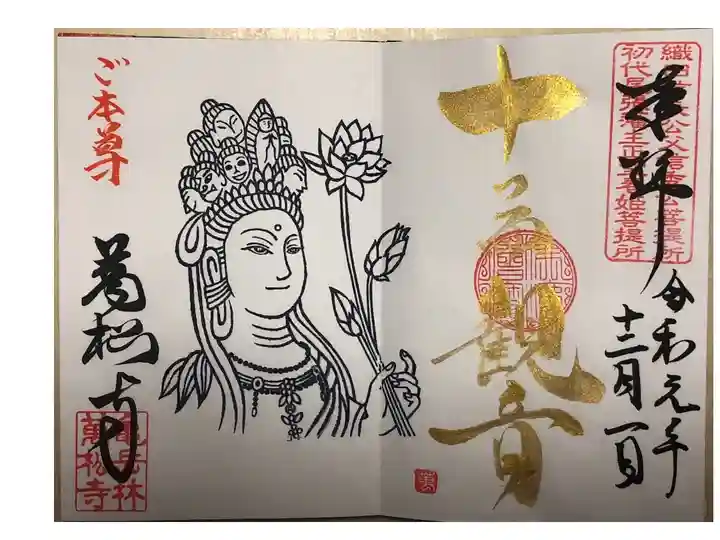 織田信長公父信秀公菩提所
初代尾張藩主正室春姫菩提所
奉拝
令和元年
十二月一日
十一面観音
ご本尊
萬松寺
亀岳林
萬松寺